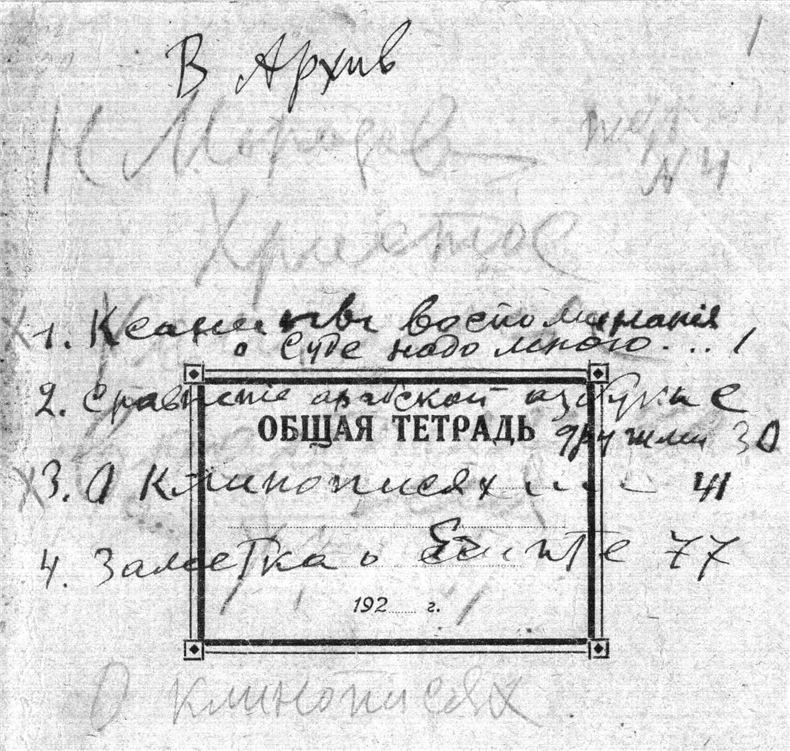 1
В Архив
Н Морозов тетр
N 4
Христос
1. Ксаны воспоминанія
о Суде надо мною... 1
2. Сравненіе арабской азбуки с
ОБЩАЯ ТЕТРАДЬ
другими 30
3. О клинописях .... 41
4. Заметка о Египте 77
192 г.
О клинописях